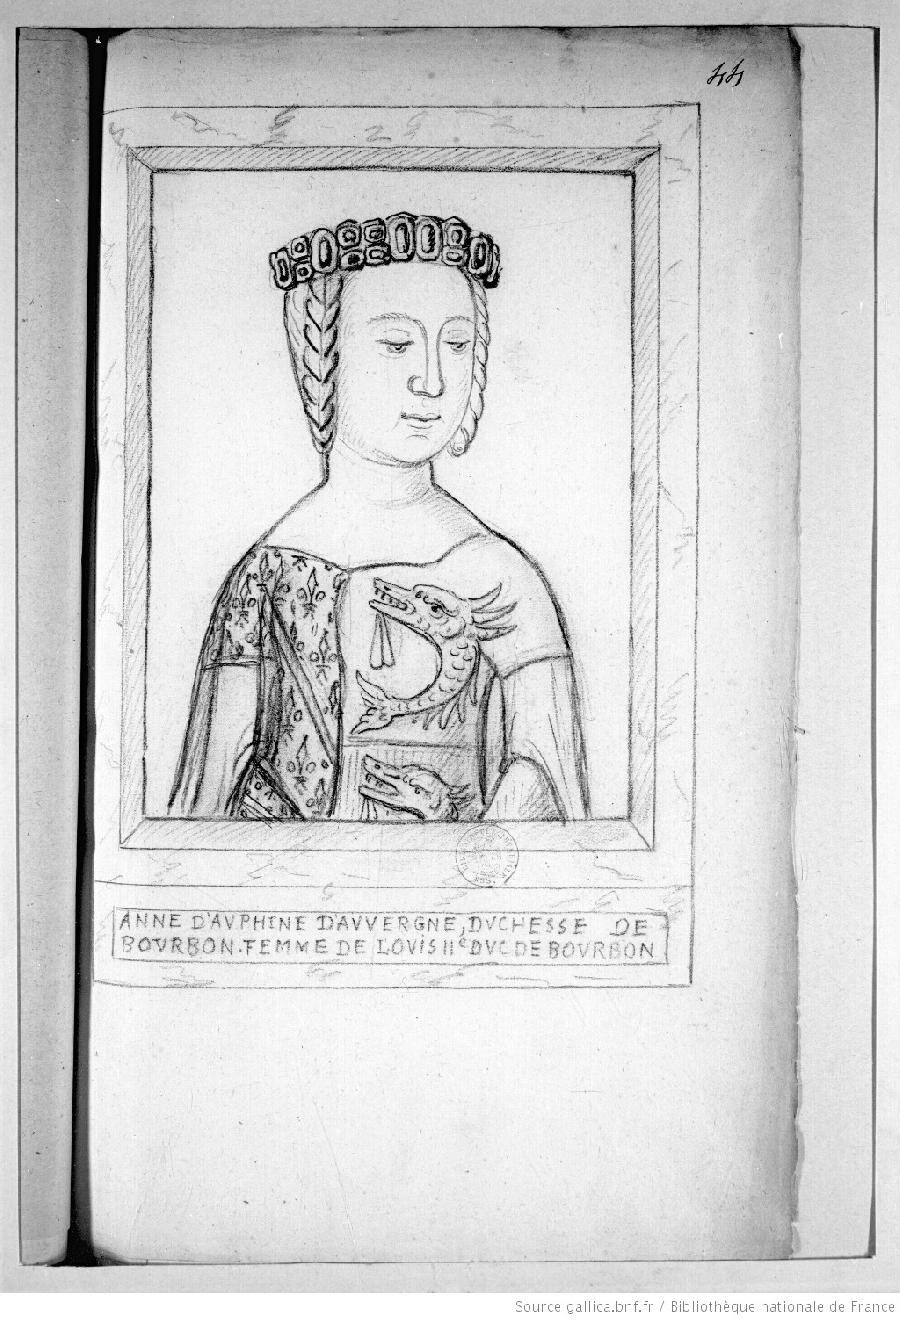 44
ANNE D'AVPHINE D'AVVERGNE, DVCHESSE DE
BOVRBON. FEMME DE LOVIS IIᵉ DVC DE BOVRBON
Source gallica.bnf.fr / Bibliothèque nationale de France